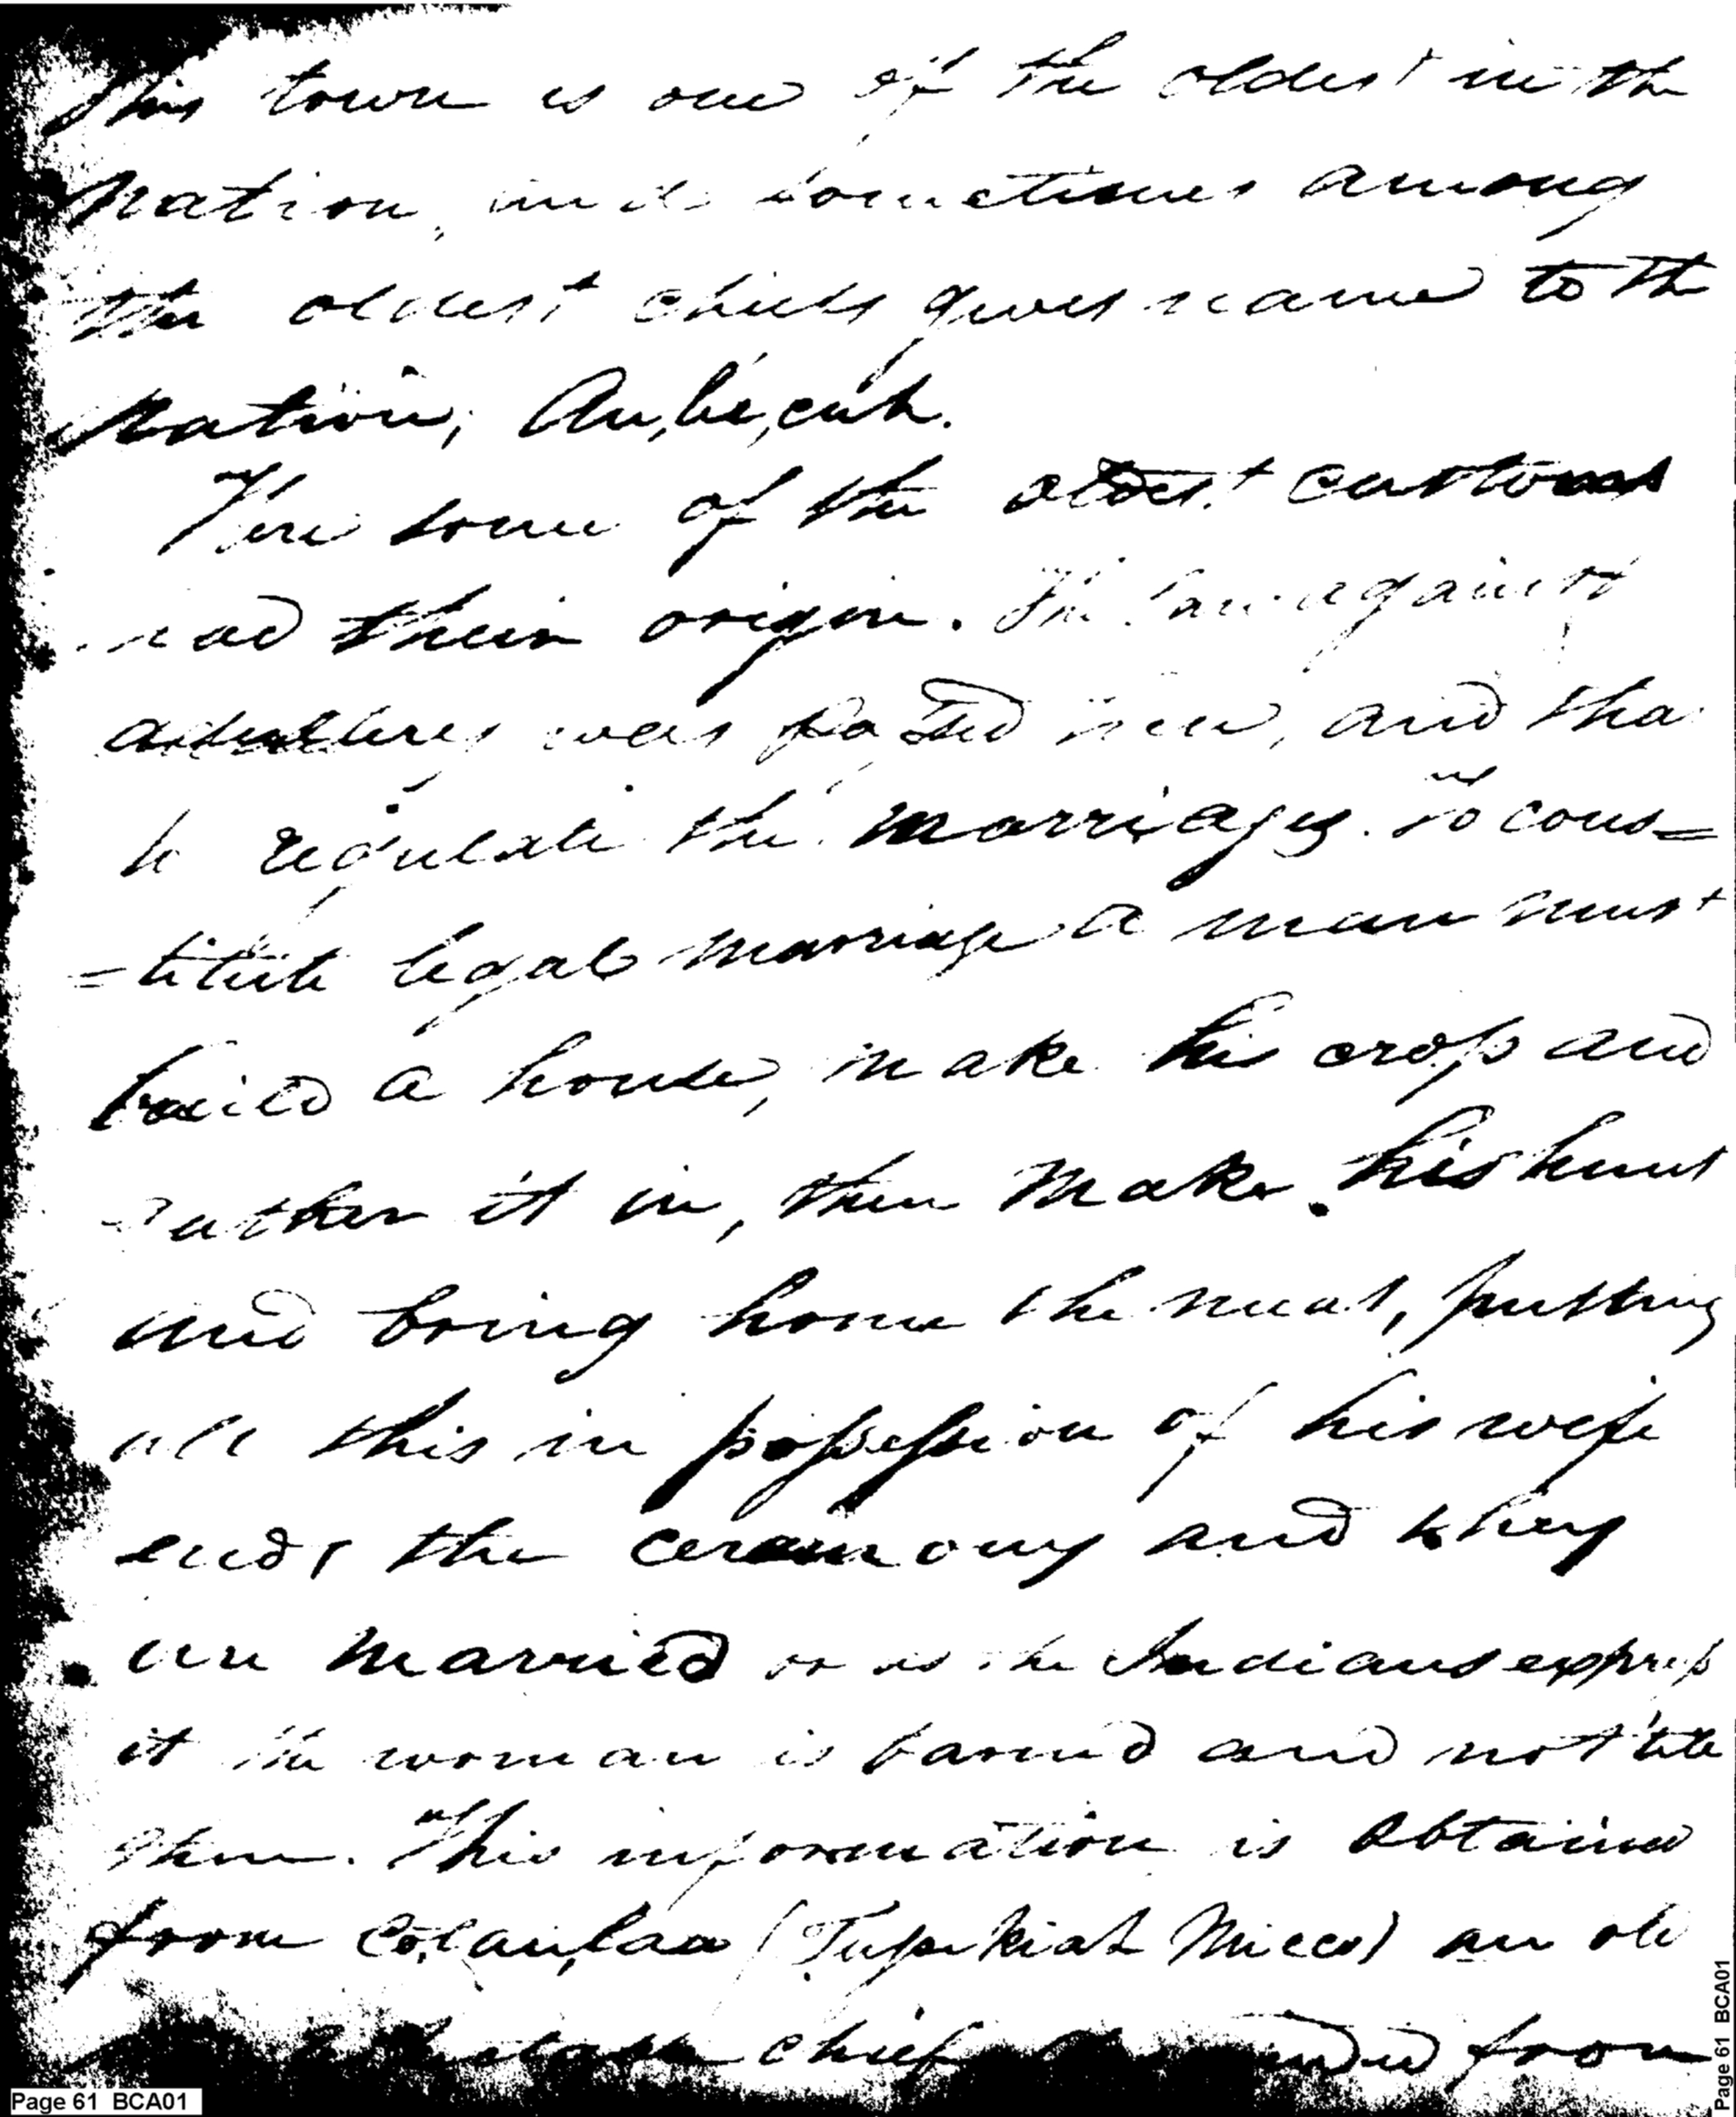 this town is one of the oldest in the
Nation, and sometimes among
the oldest chiefs gives name to the
Nation, Au,be,cuh.
Here some of the oldest customs
had their origin. The law against
adultery was passed here, and tha
to regulate the marriages. To cons=
=titute legal marriage a man must
build a house, make his crop and
gather it in, then make his hunt
and bring home the meat, putting
all this in possession of his wife
ends the ceremony and they
are married or as the Indians express
it the woman is bound and not till
then. This information is obtained
from Co,tau,lau (Tuspekiah Micco) an old
chief from
Page 61 BCA01
Page 61 BCA01